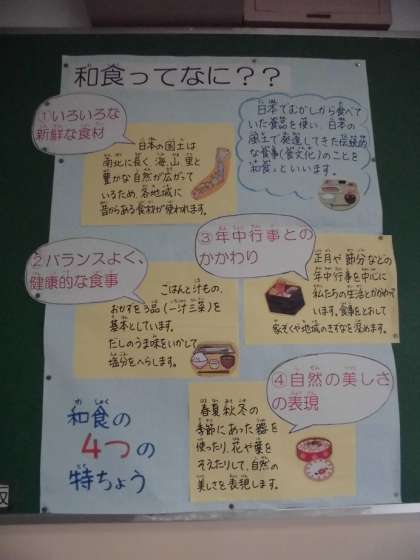 和食ってなに??
①いろいろな
新鮮な食材
日本の国土は
南北に長く、海、山、里と
豊かな自然が広がって
いるため、各地域に
昔からある食材が使われます。
日本でむかしから食べて
いた食品を使い、日本の
風土で発達してきた伝統的
な食事(食文化)のことを
"和食"といいます。
②バランスよく、
健康的な食事
ごはんと汁もの、
おかずを3品(一汁三菜)を
基本としています。
だしのうま味をいかして
塩分をへらします。
③年中行事との
かかわり
正月や節分などの
年中行事を中心に
私たちの生活とかかわって
います。食事をとおして
家ぞくや地域のきずなを深めます。
④自然の美しさ
の表現
春夏秋冬の
季節にあった器を
使ったり、花や葉を
そえたりして、自然の
美しさを表現します。
和食の
4つの
特ちょう